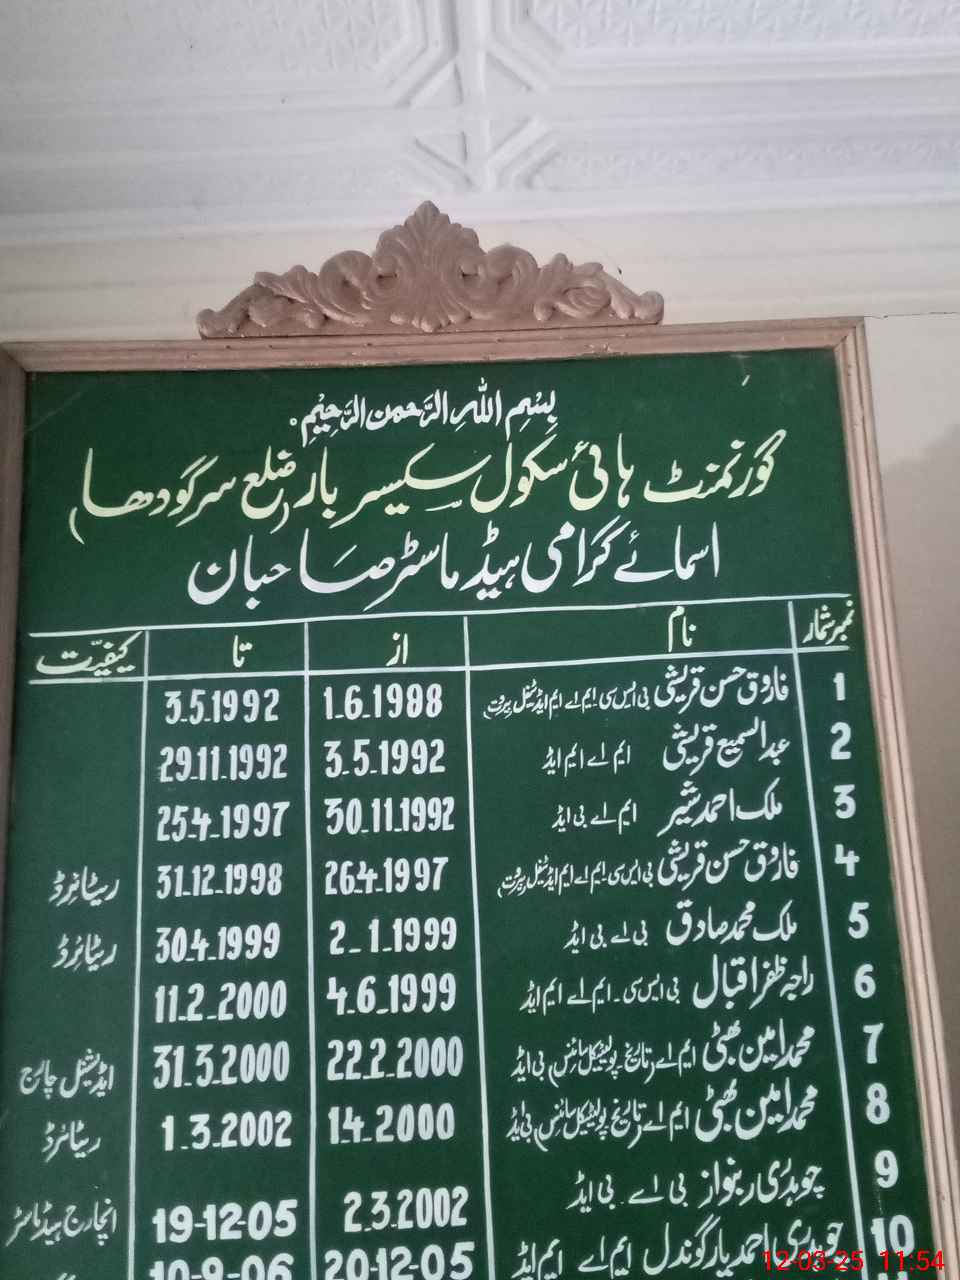 بِسْمِ اللّٰہِ الرَّحْمٰنِ الرَّحِیْمِ
گورنمنٹ ہائی سکول سکیسر بار (ضلع سرگودھا)
اسمائے گرامی ہیڈ ماسٹر صاحبان
نمبر شمار نام از تا کیفیّت
1 فاروق حسن قریشی بی ایس سی۔ ایم اے ایم ایڈ 1.6.1988 3.5.1992
2 عبدالسمیع قریشی ایم اے ایم ایڈ 3.5.1992 29.11.1992
3 ملک احمد شیر ایم اے بی ایڈ 30.11.1992 25.4.1997
4 فاروق حسن قریشی بی ایس سی۔ ایم اے ایم ایڈ 26.4.1997 31.12.1998 ریٹائرڈ
5 ملک محمد صادق بی اے بی ایڈ 2-1-1999 30.4.1999 ریٹائرڈ
6 راجہ ظفر اقبال بی ایس سی۔ ایم اے ایم ایڈ 4.6.1999 11.2.2000
7 محمد امین بھٹی ایم اے (تاریخ۔ پولیٹیکل سائنس) بی ایڈ 22.2.2000 31.3.2000 ایڈیشنل چارج
8 محمد امین بھٹی ایم اے (تاریخ پولیٹیکل سائنس) بی ایڈ 1.4.2000 1.3.2002 ریٹائرڈ
9 چوہدری ربنواز بی اے۔ بی ایڈ 2.3.2002 19-12-05 انچارج ہیڈ ماسٹر
10 چوہدری احمد یار گوندل ایم اے ایم ایڈ 20-12-05 10-9-06
12-03-25 11:54